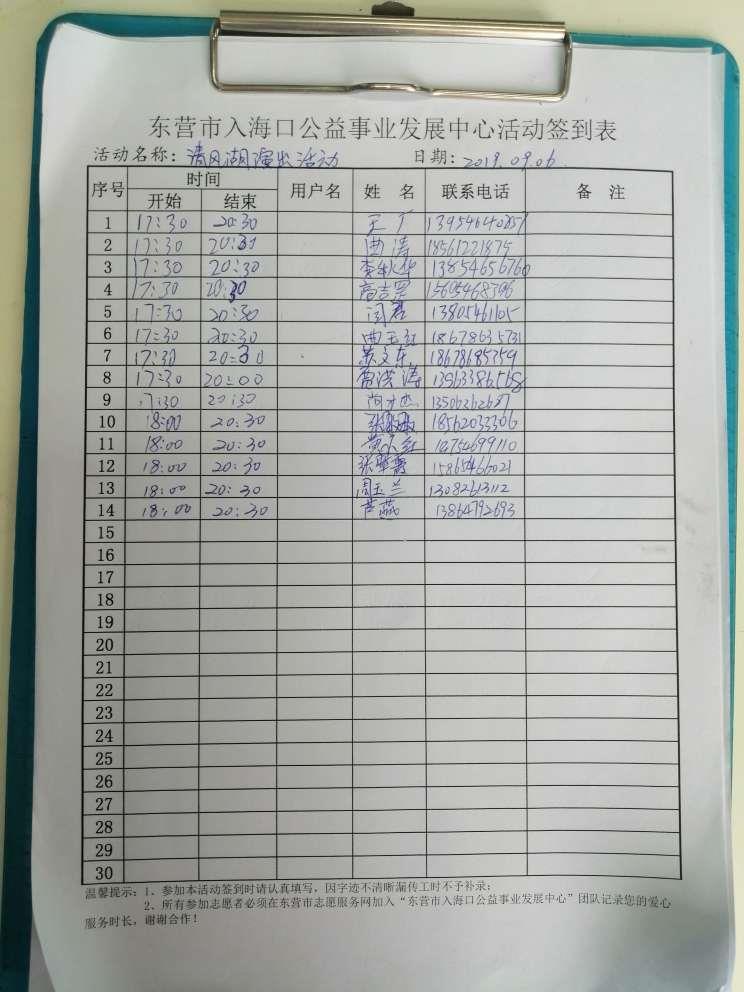 东营市入海口公益事业发展中心活动签到表
活动名称：清风湖演出活动 日期：2019.09.06.
序号 时间 用户名 姓 名 联系电话 备 注
开始 结束
1 17:30 20:30 王广
2 17:30 20:30 曲涛 18561221875
3 17:30 20:30 李秋华 13854656760
4 17:30 20:30 15605468396
5 17:30 20:30 闫君 13805461105
6 17:30 20:30 曲玉红 18678635731
7 17:30 20:30 苏文东 18678685759
8 17:30 20:00 13963386568
9 17:30 20:30
10 18:00 20:30 18562033306
11 18:00 20:30 14754699110
12 18:00 20:30 15865466021
13 18:00 20:30 周玉兰 13082613112
14 18:00 20:30 芦燕 13864792693
15
16
17
18
19
20
21
22
23
24
25
26
27
28
29
30
温馨提示：1、参加本活动签到时请认真填写，因字迹不清晰漏传工时不予补录；
2、所有参加志愿者必须在东营市志愿服务网加入“东营市入海口公益事业发展中心”团队记录您的爱心
服务时长，谢谢合作！